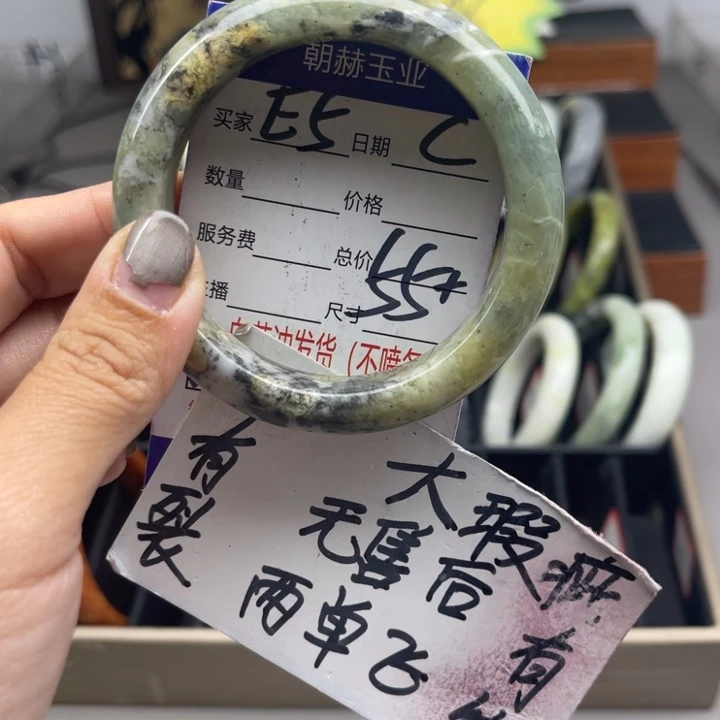 朝赫玉业
买家 E5 日期 C
数量 价格
服务费 总价 554
主播 尺寸
发货（不喷
有裂
大瑕疵
无售后
两单飞
有